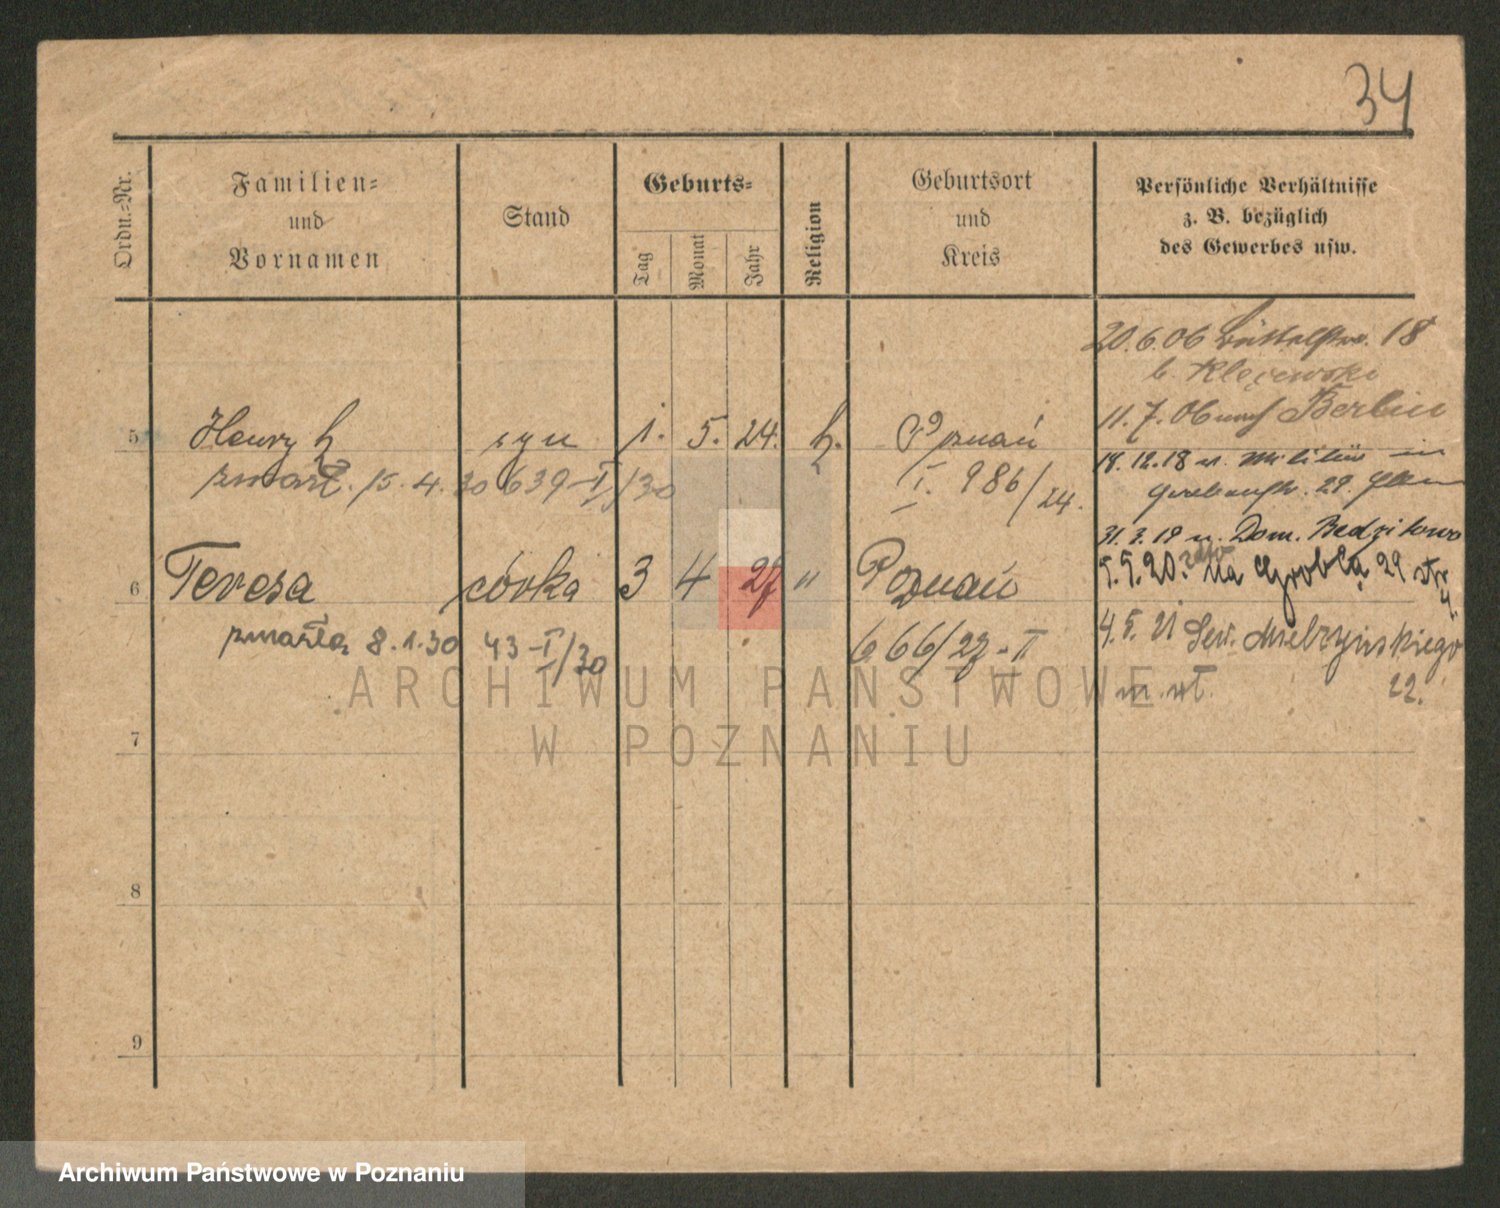 34
Ordn.-Nr.
Familien-
und
Vornamen
Stand
Geburts-
Tag
Monat
Jahr
Religion
Geburtsort
und
Kreis
Persönliche Verhältnisse
z. B. bezüglich
des Gewerbes usw.
20.6.06 18
b.
11.7. Berlin
18.12.18 v. Militär in
29.
31.3.19 n. Dom.
5.5.20. Na Groblą 29
4.5.21 Sew. Mielżyńskiego
22.
5 Henryk syn 1. 5. 24. k. Poznań
zmarł. 15.4.30 639-I/30 I. 986/24.
6 Teresa córka 3 4 27 " Poznań
zmarła 8.1.30 43-I/30 666/27-II
7
8
9
ARCHIWUM PAŃSTWOWE
W POZNANIU
Archiwum Państwowe w Poznaniu